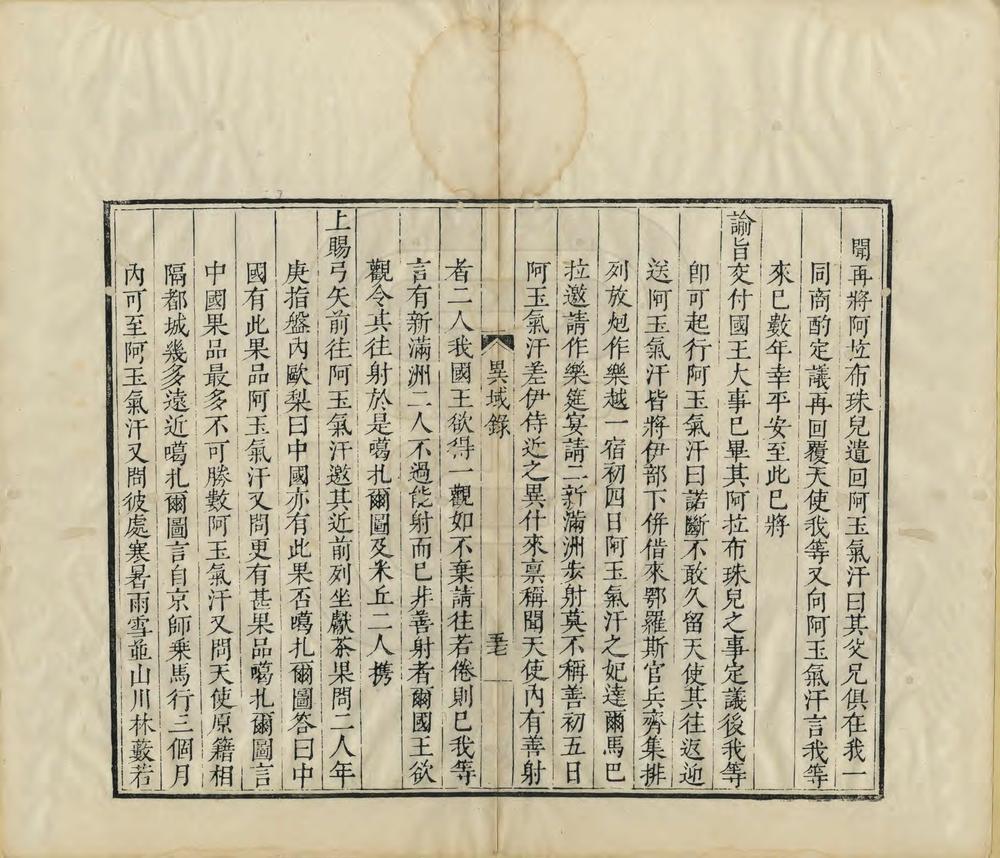 聞再將阿拉布珠兒遣回阿玉氣汗曰其父兄俱在我一
同商酌定議再回覆天使我等又向阿玉氣汗言我等
來已數年幸平安至此已將
諭旨交付國王大事已畢其阿拉布珠兒之事定議後我等
卽可起行阿玉氣汗曰諾斷不敢久留天使其往返迎
送阿玉氣汗皆將伊部下併借來鄂羅斯官兵齊集排
列放炮作樂越一宿初四日阿玉氣汗之妃達爾馬巴
拉邀請作樂筵宴請二新滿洲步射莫不稱善初五日
阿玉氣汗差伊侍近之異什來禀稱聞天使內有善射
異域錄
至
者二人我國王欲得一觀如不棄請往若倦則已我等
言有新滿洲二人不過能射而已非善射者爾國王欲
觀令其往射於是噶扎爾圖及米丘二人携
上賜弓矢前往阿玉氣汗邀其近前列坐獻茶果問二人年
庚指盤內歐梨曰中國亦有此果否噶扎爾圖答曰中
國有此果品阿玉氣汗又問更有甚果品噶扎爾圖言
中國果品最多不可勝數阿玉氣汗又問天使原籍相
隔都城幾多遠近噶扎爾圖言自京師乘馬行三個月
內可至阿玉氣汗又問彼處寒暑雨雪並山川林藪若